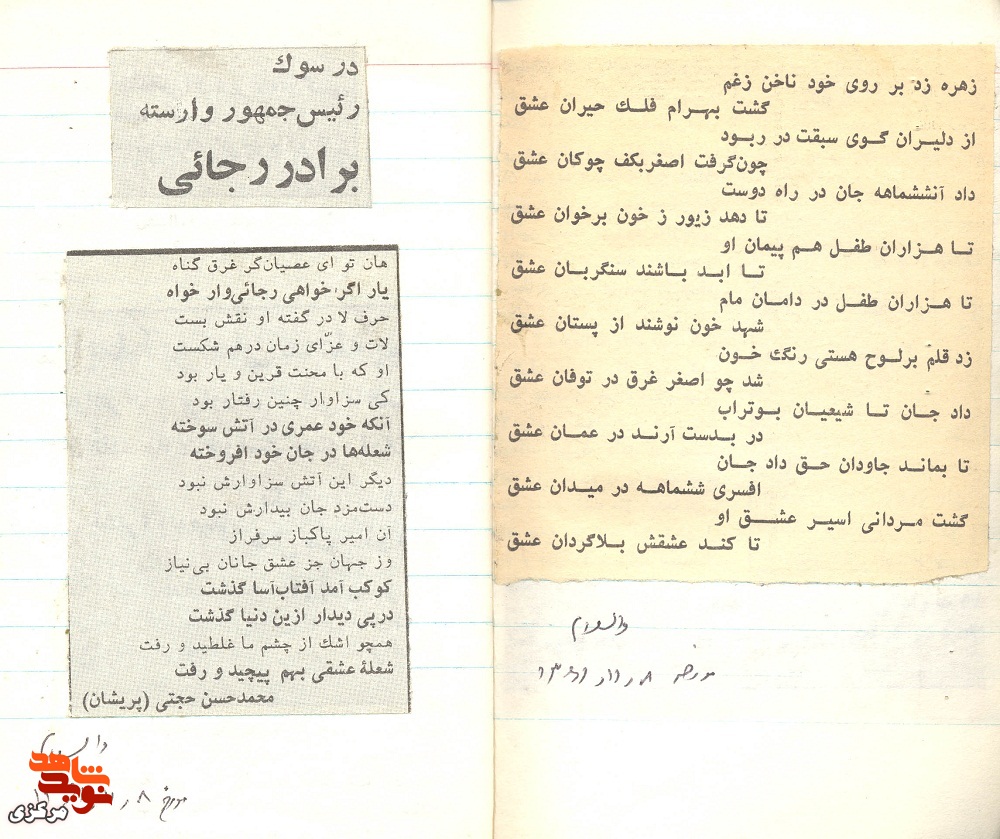 زهره زد بر روی خود ناخن زغم
گشت بهرام فلك حیران عشق
از دلیران گوی سبقت در ربود
چون‌گرفت اصغربکف چوکان عشق
داد آنششماهه جان در راه دوست
تا دهد زیور ز خون برخوان عشق
تا هزاران طفل هم پیمان او
تا ابد باشند سنگربان عشق
تا هزاران طفل در دامان مام
شهد خون نوشند از پستان عشق
زد قلم برلوح هستی رنگ خون
شد چو اصغر غرق در توفان عشق
داد جان تا شیعیان بوتراب
در بدست آرند در عمان عشق
تا بماند جاودان حق داد جان
افسری ششماهه در میدان عشق
گشت مردانی اسیر عشق او
تا کند عشقش بلاگردان عشق
والسلام
مورخه ۸ ر ۱۱ ر ۱۳۶۱
در سوك
رئیس‌جمهور وارسته
برادر رجائی
هان تو ای عصیان‌گر غرق گناه
یار اگر خواهی رجائی‌وار خواه
حرف لا در گفته او نقش بست
لات و عزّای زمان درهم شکست
او که با محنت قرین و یار بود
کی سزاوار چنین رفتار بود
آنکه خود عمری در آتش سوخته
شعله‌ها در جان خود افروخته
دیگر این آتش سزاوارش نبود
دست‌مزد جان بیدارش نبود
آن امیر پاکباز سرفراز
وز جهان جز عشق جانان بی‌نیاز
کوکب آمد آفتاب‌آسا گذشت
درپی دیدار ازین دنیا گذشت
همچو اشك از چشم ما غلطید و رفت
شعلهٔ عشقی بهم پیچید و رفت
محمدحسن حجتی (پریشان)
مورخ ۸ ر
نوید شاهد
مرکزی